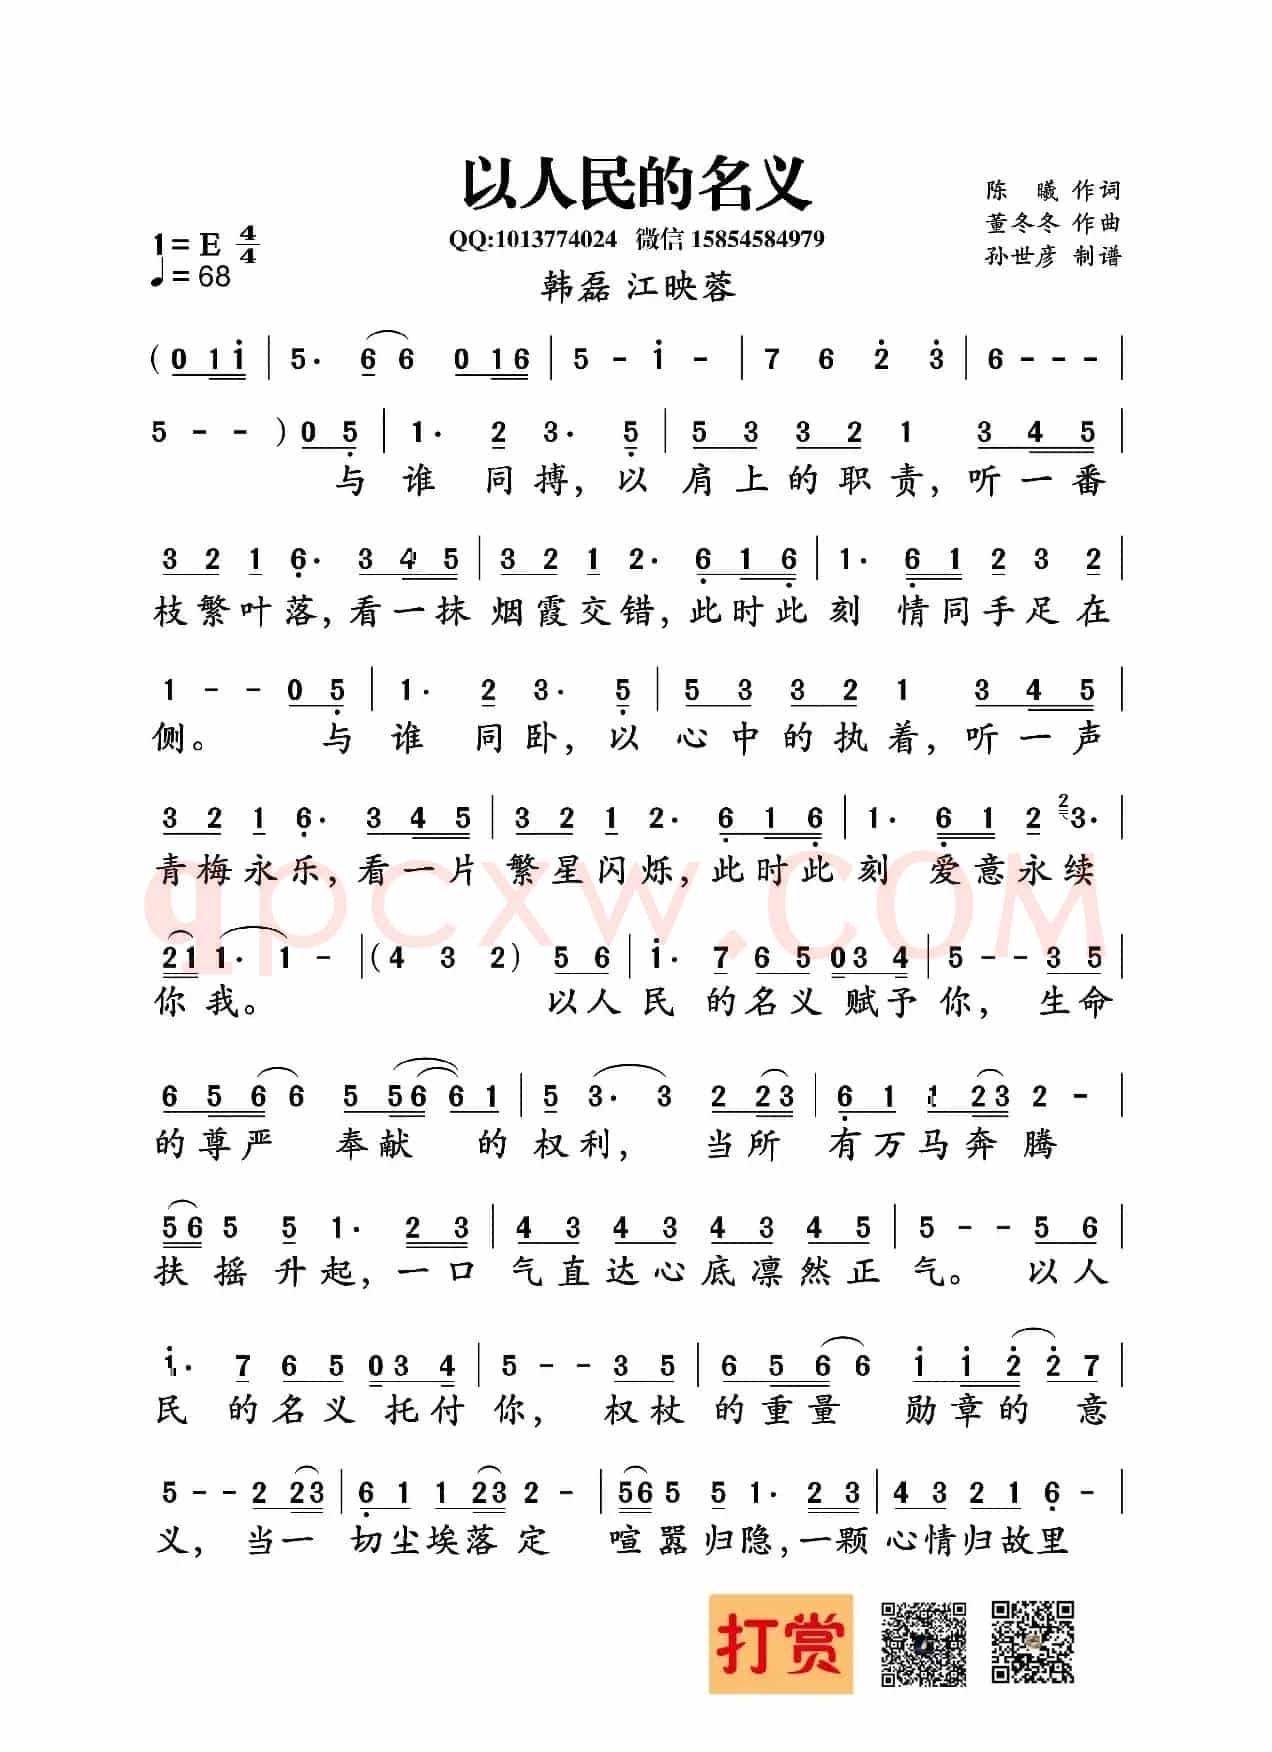 以人民的名义
陈 曦 作词
1=E 4/4
QQ:1013774024 微信 15854584979
董冬冬 作曲
♩=68
韩磊 江映蓉
孙世彦 制谱
(0 1 1̇ | 5· 6 6 0 1 6 | 5 - 1̇ - | 7 6 2̇ 3̇ | 6 - - - |
5 - - ) 0 5̣ | 1· 2 3· 5̣ | 5 3 3 2 1 3 4 5 |
与谁 同搏，以肩上的职责，听一番
3 2 1 6̣· 3 4 5 | 3 2 1 2· 6̣ 1 6̣ | 1· 6̣ 1 2 3 2 |
枝繁叶落，看一抹 烟霞交错，此时此刻 情同手足在
1 - - 0 5̣ | 1· 2 3· 5̣ | 5 3 3 2 1 3 4 5 |
侧。 与谁 同卧，以心中的执着，听一声
3 2 1 6̣· 3 4 5 | 3 2 1 2· 6̣ 1 6̣ | 1· 6̣ 1 2 2 3· |
青梅永乐，看一片繁星闪烁，此时此刻 爱意永续
2 1 1· 1 - | (4 3 2) 5 6 | 1̇· 7 6 5 0 3 4 | 5 - - 3 5 |
你我。 以人民 的名义赋予你，生命
6 5 6 6 5 5 6 6 1 | 5 3· 3 2 2 3 | 6̣ 1 1 2 3 2 - |
的尊严 奉献 的权利，当所有万马奔腾
5 6 5 5 1· 2 3 | 4 3 4 3 4 3 4 5 | 5 - - 5 6 |
扶摇升起，一口气直达心底凛然正气。以人
1̇· 7 6 5 0 3 4 | 5 - - 3 5 | 6 5 6 6 1̇ 1̇ 2̇ 2̇ 7 |
民 的名义托付你，权杖的重量 勋章的 意
5 - - 2 2 3 | 6̣ 1 1 2 3 2 - | 5 6 5 5 1· 2 3 | 4 3 2 1 6̣ - |
义，当一切尘埃落定 喧嚣归隐，一颗心情归故里
qpcxw.COM
打赏